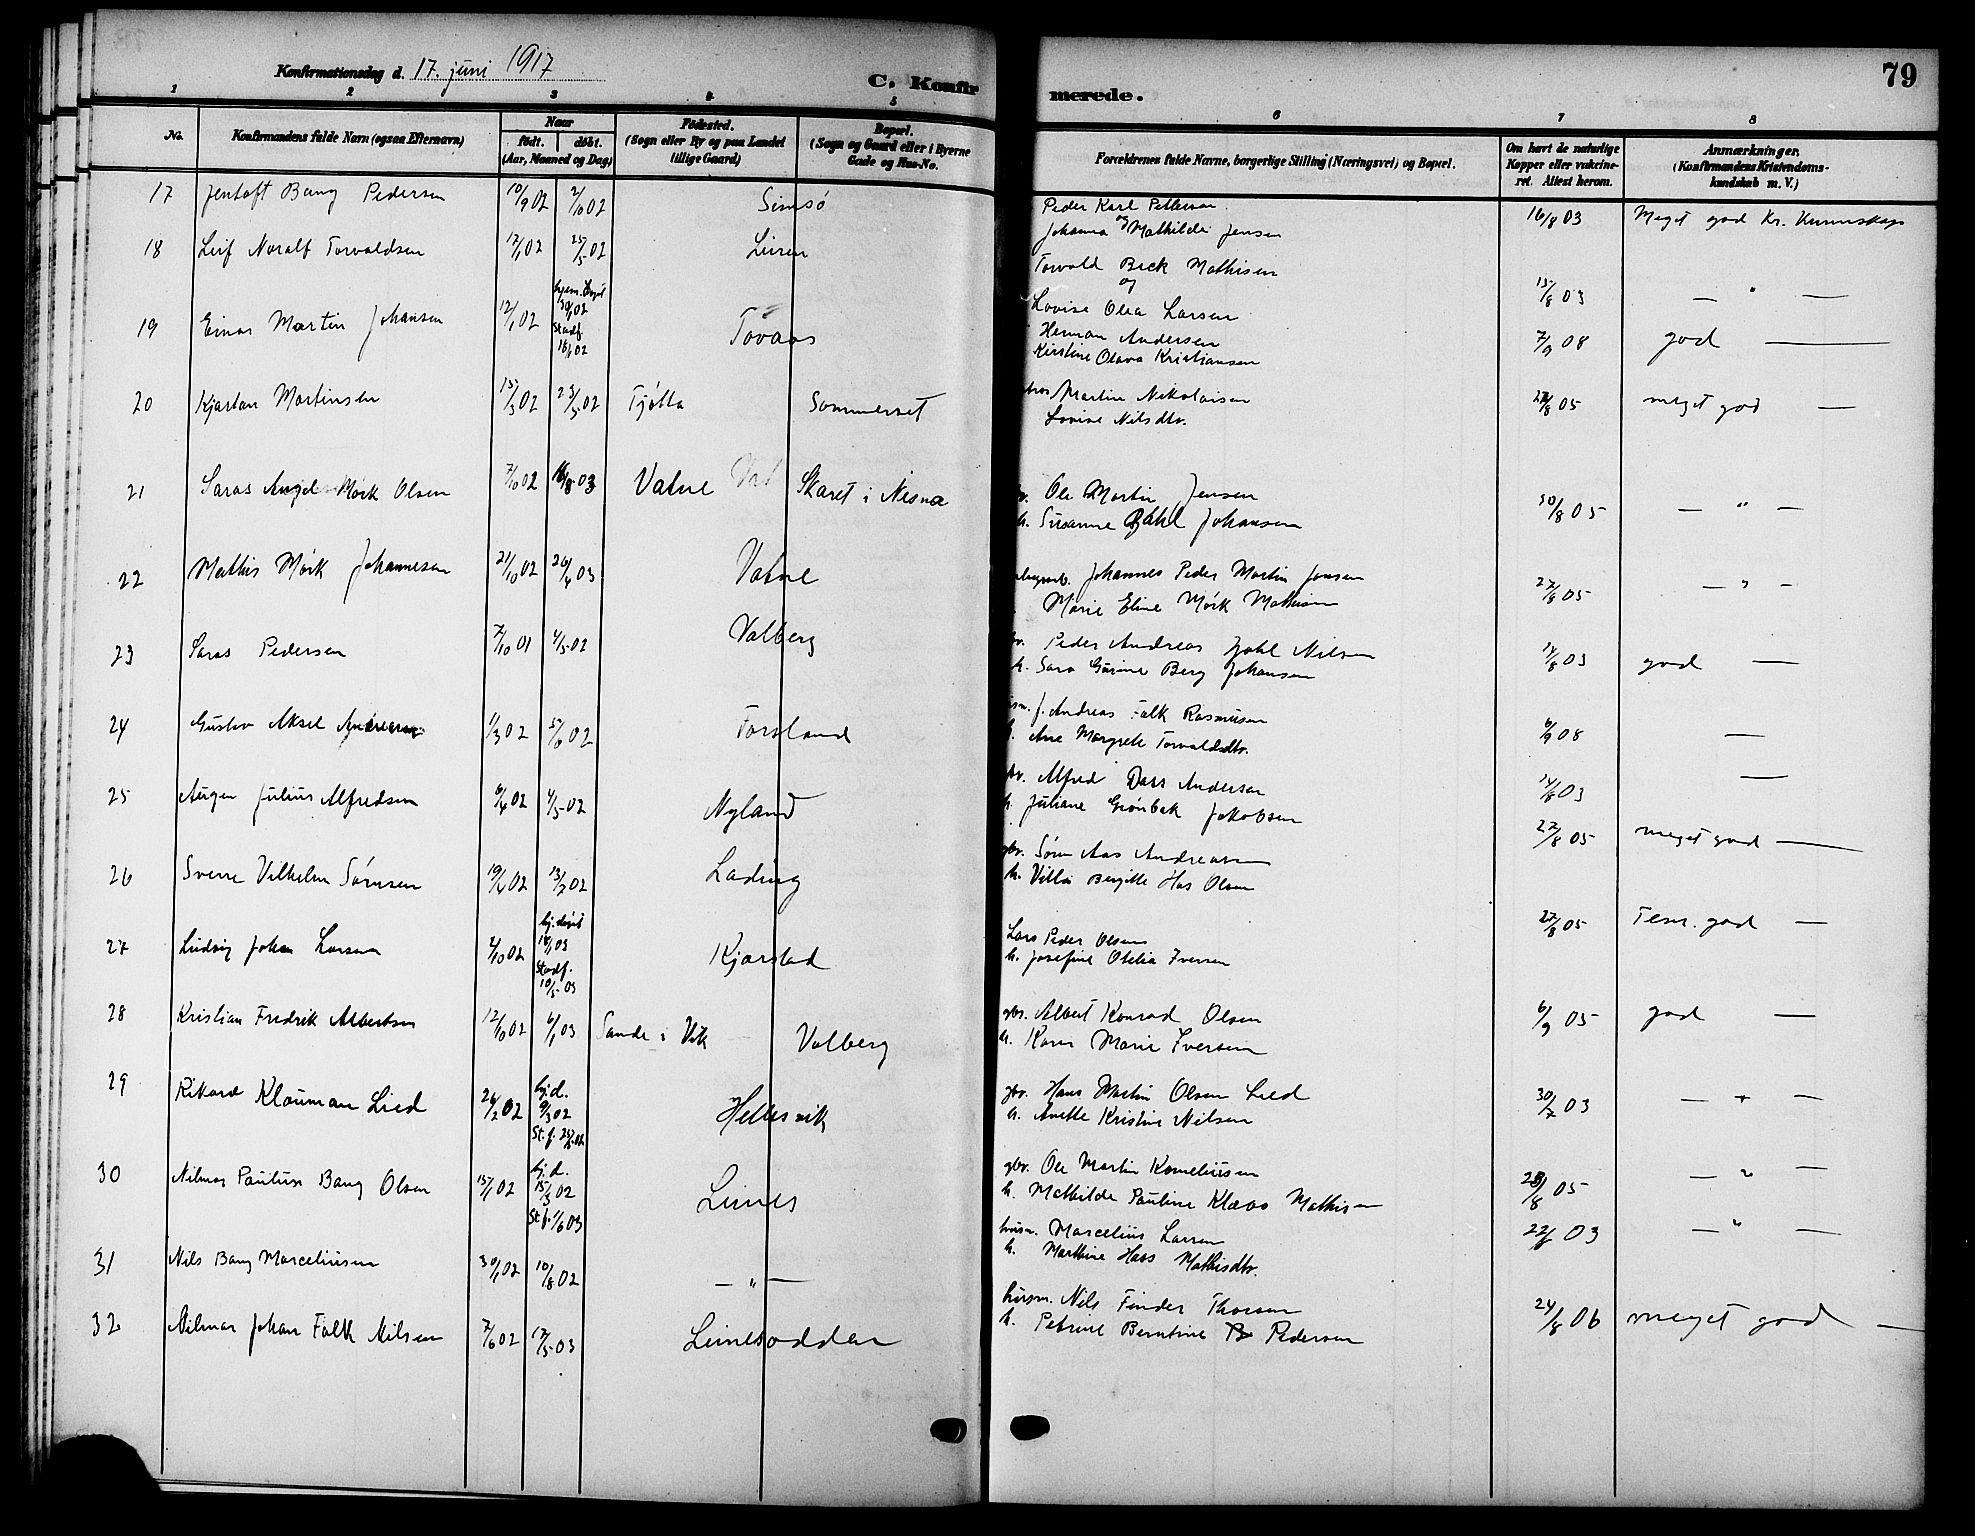 Konfirmationsdag d. 17. juni 1917
C. Konfirmerede.
79
1 2 3 4 5 6 7 8
No.
Konfirmandens fulde Navn (ogsaa Efternavn)
Naar
født. døbt.
(Aar, Maaned og Dag)
Fødested.
(Sogn eller By og paa Landet
tillige Gaard)
Bopæl.
(Sogn og Gaard eller i Byerne
Gade og Hus-No.
Forældrenes fulde Navne, borgerlige Stilling (Næringsvei) og Bopæl.
Om havt de naturlige
Kopper eller vakcine-
ret. Attest herom.
Anmærkninger,
(Konfirmandens Kristendoms-
kundskab m. V.)
17 Jentoft Bang Pedersen 10/9 02 2/10 02 Simsø
Peder Karl Pettersen
og
Johanna Mathilde Jensen
16/8 03 Meget god Kr. Kunnskap
18 Leif Noralf Torvaldsen 12/1 02 25/5 02 Leiren
Torvald Beck Mathisen
og
Lovise Olea Larsen
15/8 03 — " —
19 Einar Martin Johansen 12/1 02 hjem. døpt 30/1 02 Stadf. 18/5 02 Tovaas
Herman Andersen
Kirstine Olava Kristiansen
7/9 08 god —
20 Kjartan Martinsen 15/3 02 23/5 02 Tjøtta Sommerset
Martin Nikolaisen
Lovise Nilsdtr.
28/8 05 meget god —
21 Saras Angel Mørk Olsen 7/10 02 16/8 03 Vatne Skaret i Nesna
Ole Martin Jensen
h. Susanne Dahl Johansen
30/8 05 — " —
22 Mathis Mørk Johannesen 21/10 02 26/4 03 Vatne
Johannes Peder Martin Jensen
Marie Eline Mørk Mathisen
27/8 05 — " —
23 Saras Pedersen 7/10 01 4/5 02 Valberg
Peder Andreas Johl Nilsen
h. Sara Gurine Berg Johansen
14/8 03 god —
24 Gustav Aksel Andreasen 11/3 02 5/6 02 Forsland
J. Andreas Falk Rasmusen
h. Ane Margrete Torvaldsdtr.
6/9 08 —
25 Augen Julius Alfredsen 6/4 02 4/5 02 Nyland
Alfred Dass Andersen
h. Juliane Grønbek Jakobsen
14/8 03 —
26 Sverre Vilhelm Sørnsen 19/6 02 13/7 02 Lading
gbr. Sørn Aas Andreasen
h. Villa Bergitte Has Olsen
27/8 05 meget god —
27 Ludvig Johan Larsen 2/10 02 hj. døpt 18/1 03 Stadf. 10/5 03 Kjærstad
Lars Peder Olsen
h. Josefine Otelia Iversen
27/8 05 Tem. god —
28 Kristian Fredrik Albertsen 12/10 02 6/1 03 Sande i Vik Valberg
gbr. Albert Konrad Olsen
h. Karen Marie Iversen
6/9 05 god —
29 Rikard Klauman Lied 26/2 02 hj. d. 9/3 02 St. f. 25/5 02 Hellesvik
gbr. Hans Martin Olsen Lied
h. Anette Kristine Nilsen
30/7 03 — " —
30 Nilmar Paulus Bang Olsen 15/1 02 hj. d. 15/3 02 St. f. 1/6 03 Leines
gbr. Ole Martin Korneliusen
h. Mathilde Pauline Klæbo Mathisen
28/8 05 — " —
31 Nils Bang Marceliusen 30/1 02 10/8 02 — " —
husm. Marcelius Larsen
h. Marthine Hass Mathisdtr.
22/8 03 — " —
32 Nilmar Johan Falk Nilsen 7/6 02 17/5 03 Leinesodden
husm. Nils Finder Thorsen
h. Petrine Berntine Pedersen
24/8 06 meget god —